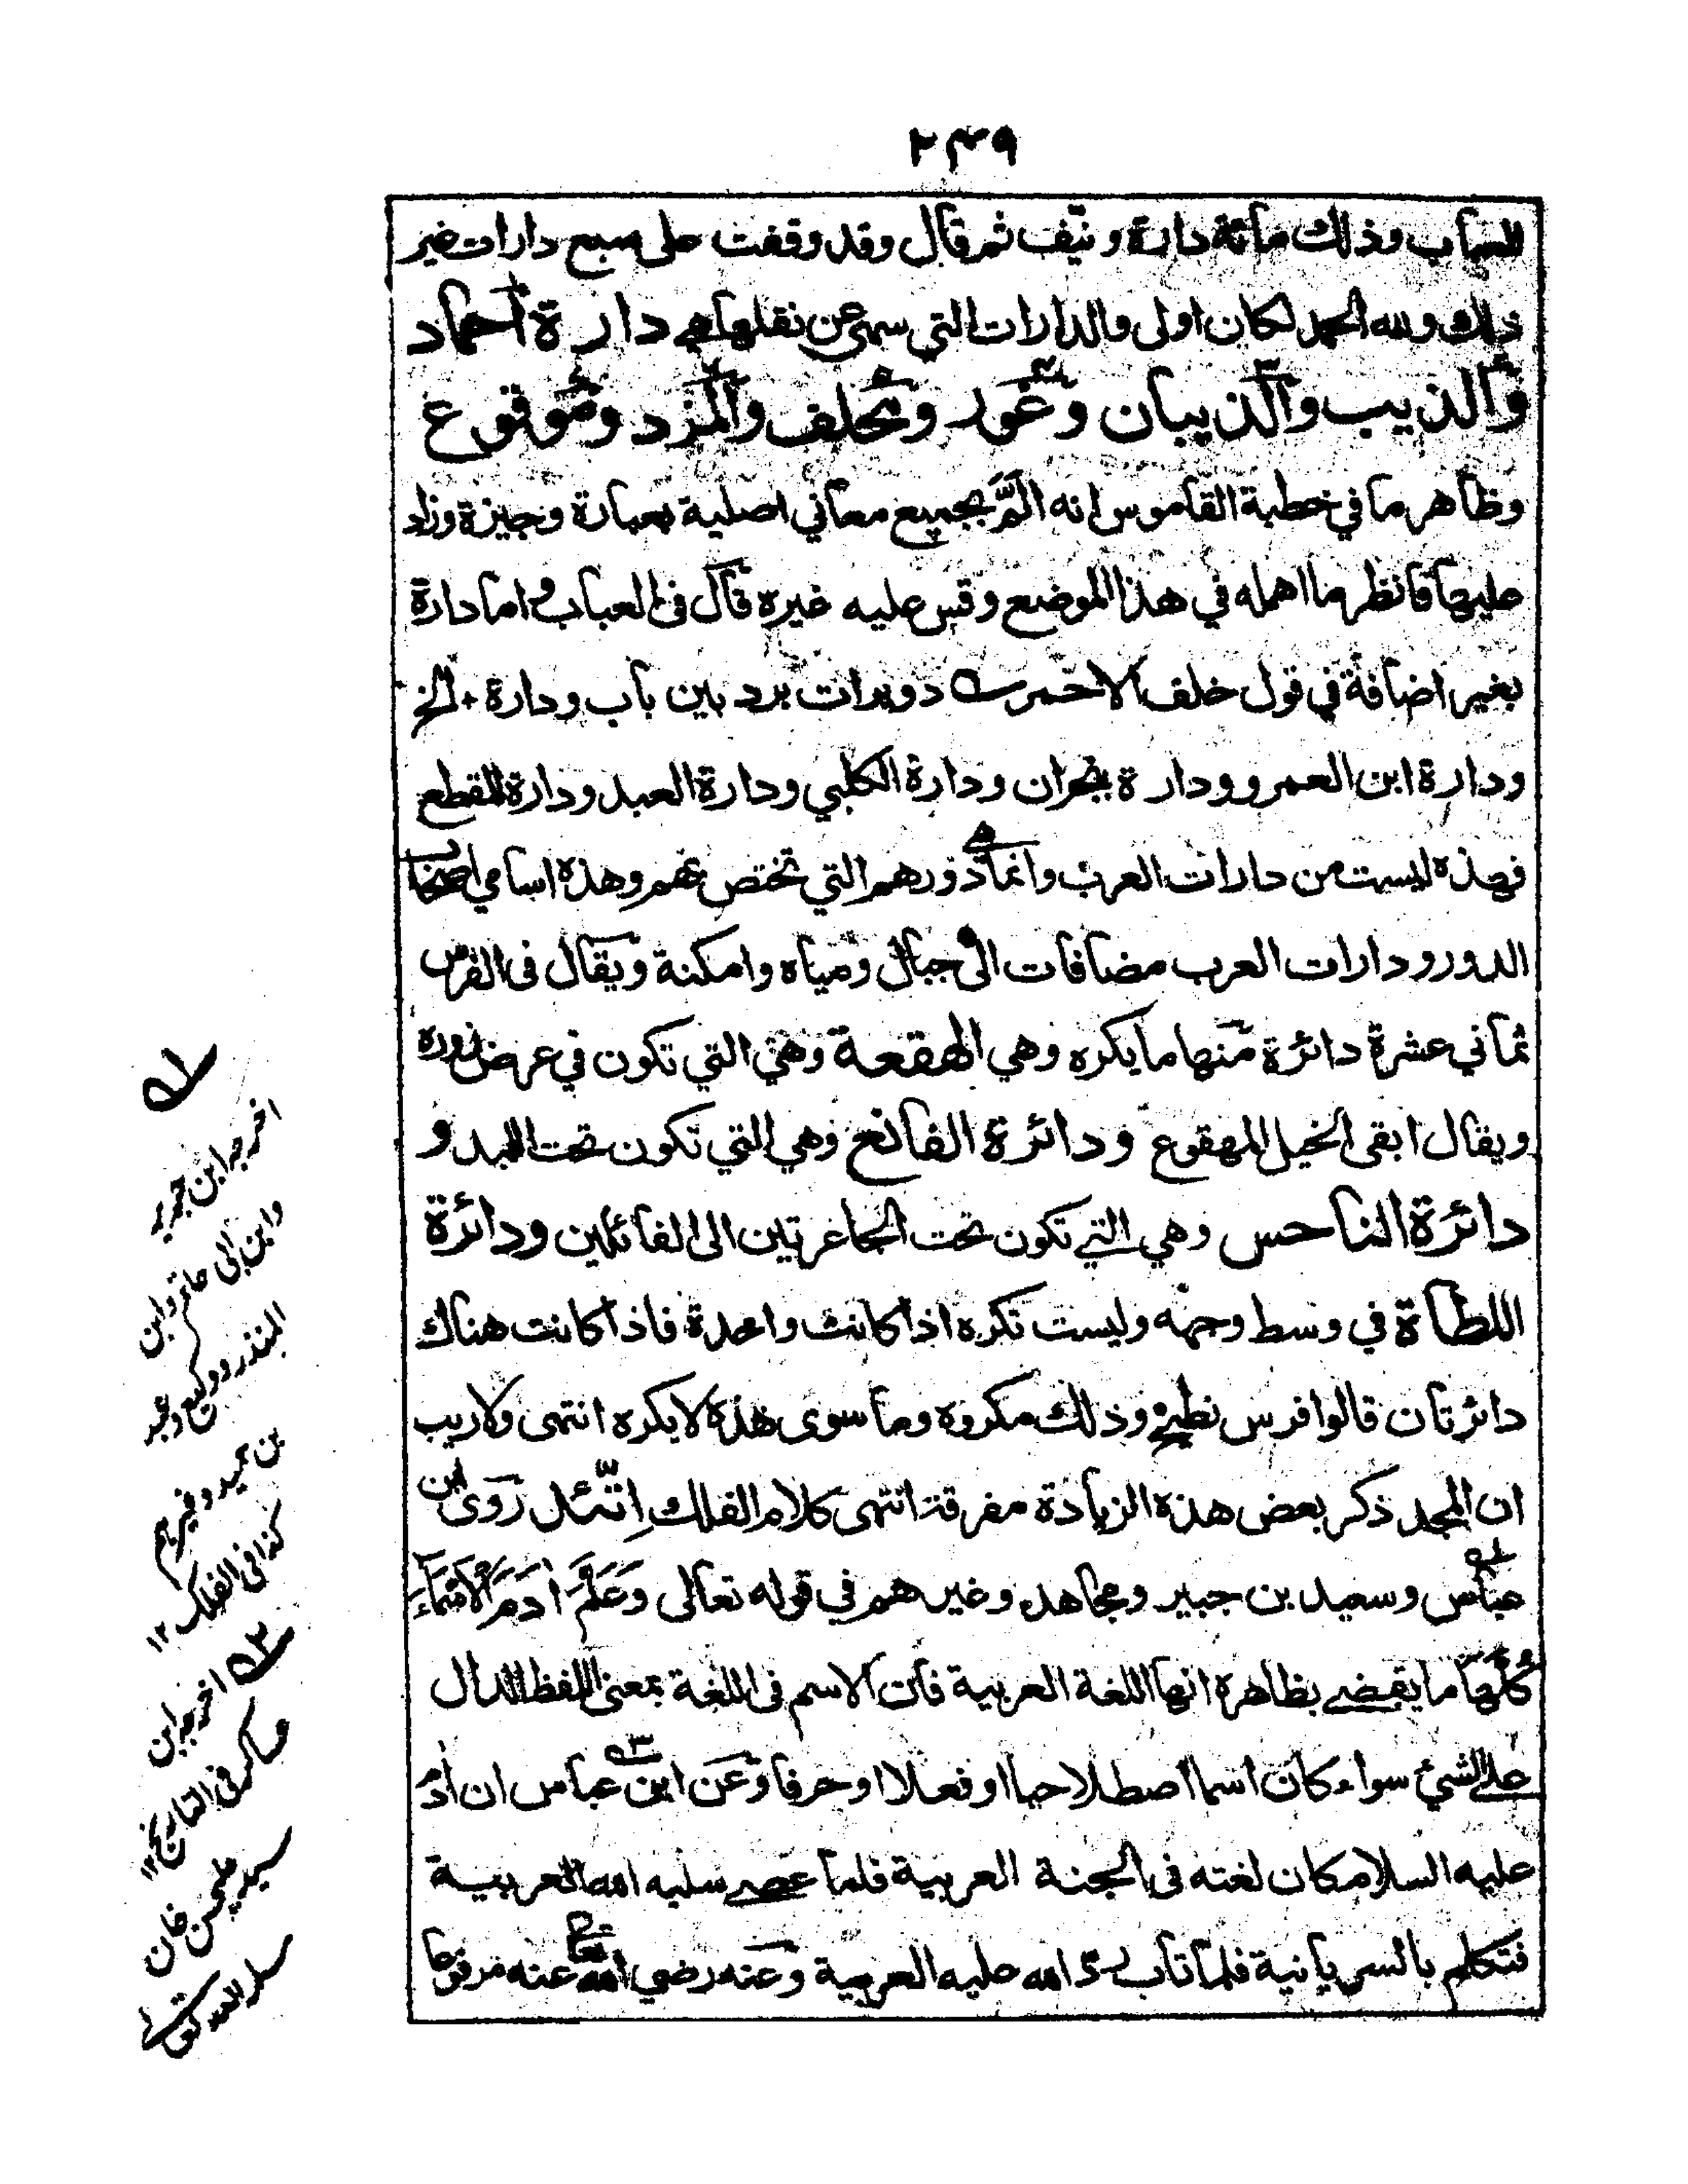 ۲۴۹
العباب وذلك مائة دارة ونيّف ثم قال وقد وقفت على سبع دارات غير
ذلك ولله الحمد لكان اولى والدارات التي سهى عن نقلها هي دارة أحماد
والذيب والذيبان وغور ومحلف والمزد وموقوع
وظاهر ما في خطبة القاموس انه المّ بجميع معاني اصلية بعبارة وجيزة وزاد
عليها فانظر ما اهمله في هذا الموضع وقس عليه غيره قال فى العباب واما دارة
بغير اضافة في قول خلف الاحمر دويرات برد بين باب ودارة الخ
ودارة ابن العمرو ودارة بنجران ودارة الكلبي ودارة العبد ودارة المقطع
فهذه ليست من دارات العرب وانما هي ذورهم التي تختص بهم وهذه اسامي اصحاب
الدور ودارات العرب مضافات الى جبال ومياه وامكنة ويقال فى الفرس
ثماني عشرة دائرة منها ما يكره وهي الهقعة وهي التي تكون في عرض زوره
ويقال ابقى الخيل المهقوع ودائرة الفالغ وهي التي تكون تحت اللبد و
دائرة الناحس وهي التي تكون تحت الجاعرتين الى الفائلين ودائرة
اللطاة في وسط وجهه وليست تكره اذا كانت واحدة فاذا كانت هناك
دائرتان قالوا فرس نطيح وذلك مكروه وما سوى هذه لا يكره انتهى ولا ريب
ان المجد ذكر بعض هذه الزيادة مفرقة انتهى كلام الفلك اِتّئد روى ابن
عباس وسعيد بن جبير ومجاهد وغيرهم في قوله تعالى وَعَلَّمَ اٰدَمَ الْاَسْمَآءَ
كُلَّهَا ما يقضي بظاهره انها اللغة العربية فان الاسم فى اللغة بمعنى اللفظ الدال
على الشئ سواء كان اسما اصطلاحيا او فعلا او حرفا وعن ابن عباس ان اٰدم
عليه السلام كان لغته فى الجنة العربية فلما عصى سلبه الله العربية
فتكلم بالسريانية فلما تاب رد الله عليه العربية وعنه رضي الله تعالى عنه مرفوعا
اخرجه ابن جرير
وابن ابى حاتم وابن
المنذر ووكيع وعبد
بن حميد وغيرهم
كذا فى الفلك ۱۲
اخرجه ابن
عساكر فى التاريخ ۱۲
سيد علي حسن خان
سلمه الله تعالى